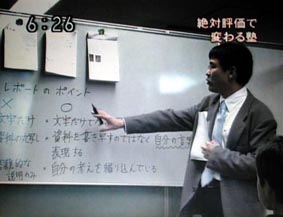 6:26
絶対評価で
変わる塾
レポートのポイント
× ○
文字だけ ・文字だけで
資料の丸写し ・資料を書き写すのではなく自分の言葉
表現する
説明のみ ・自分の考えを盛り込んでいる